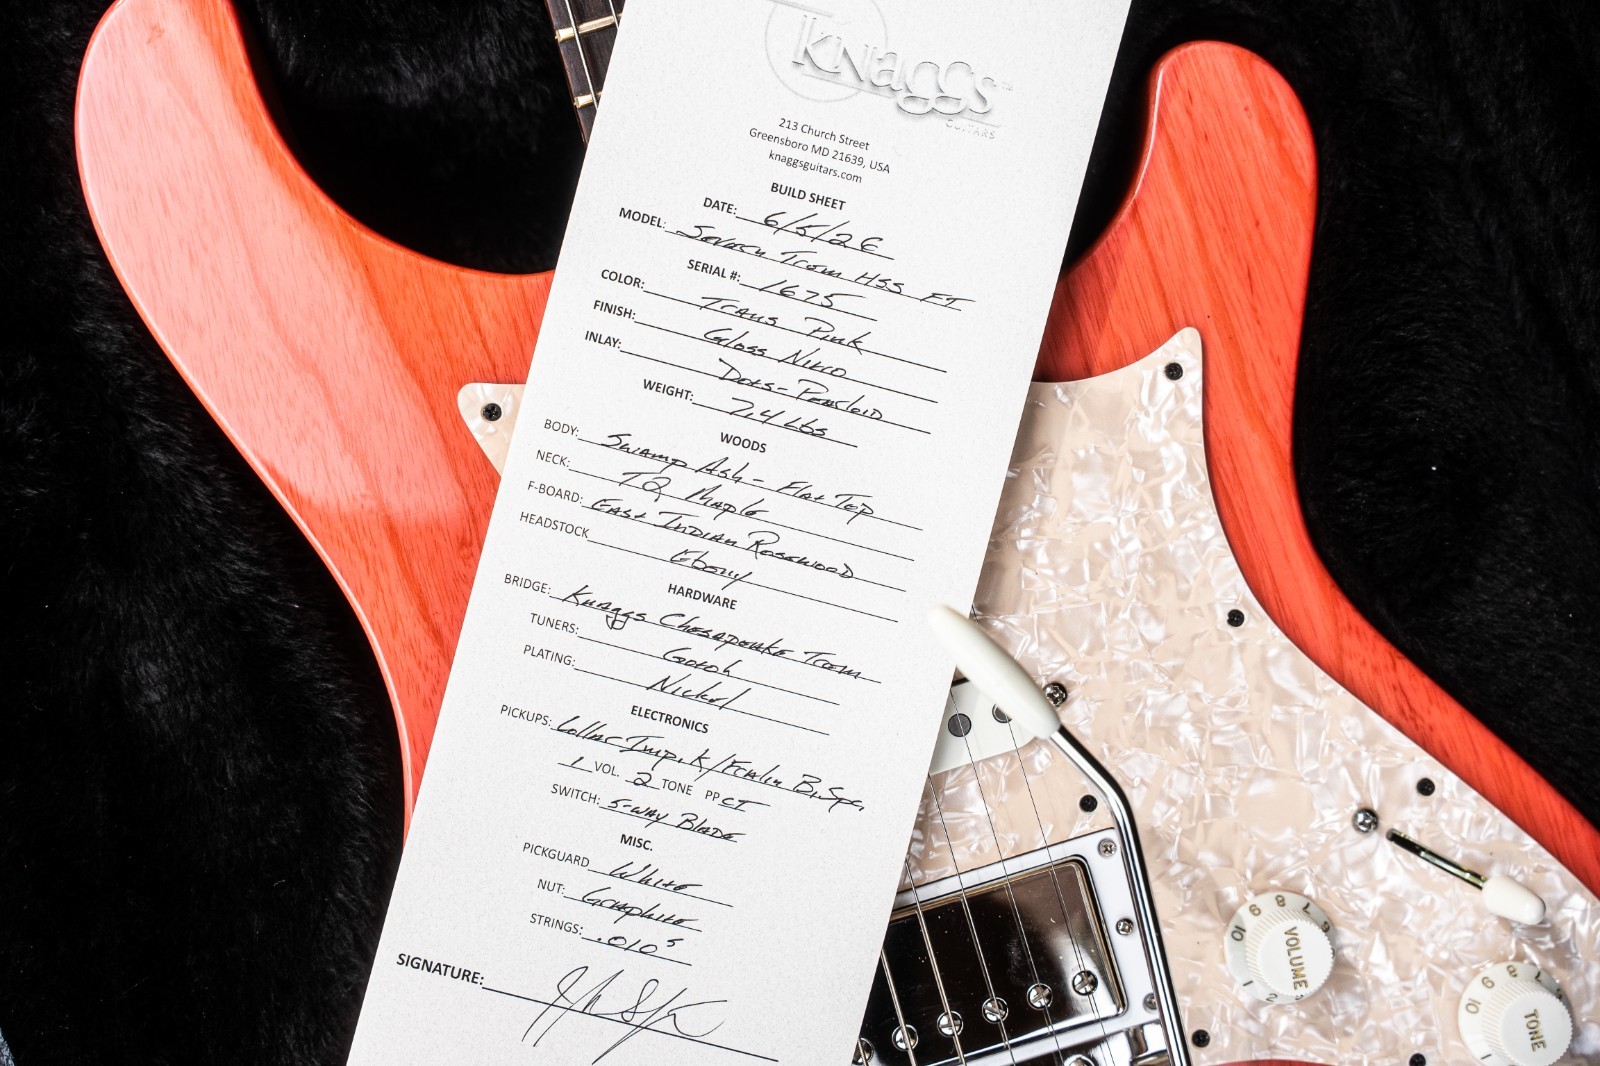 Knaggs™
GUITARS
213 Church Street
Greensboro MD 21639, USA
knaggsguitars.com
BUILD SHEET
DATE: 6/5/26
MODEL: Severn Trem HSS FT
SERIAL #: 1675
COLOR: Trans Pink
FINISH: Gloss Nitro
INLAY: Dots - Pearloid
WEIGHT: 7.4 Lbs
WOODS
BODY: Swamp Ash - Flat Top
NECK: TQ Maple
F-BOARD: East Indian Rosewood
HEADSTOCK Ebony
HARDWARE
BRIDGE: Knaggs Chesapeake Trem
TUNERS: Gotoh
PLATING: Nickel
ELECTRONICS
PICKUPS: Lollar Imp. k/Fralin B. Sps.
1 VOL. 2 TONE PP CT
SWITCH: 5-way Blade
MISC.
PICKGUARD White
NUT: Graphite
STRINGS: .010s
SIGNATURE:
10 9 8 7 6
VOLUME
1 2
10 9 8 7
TONE
1